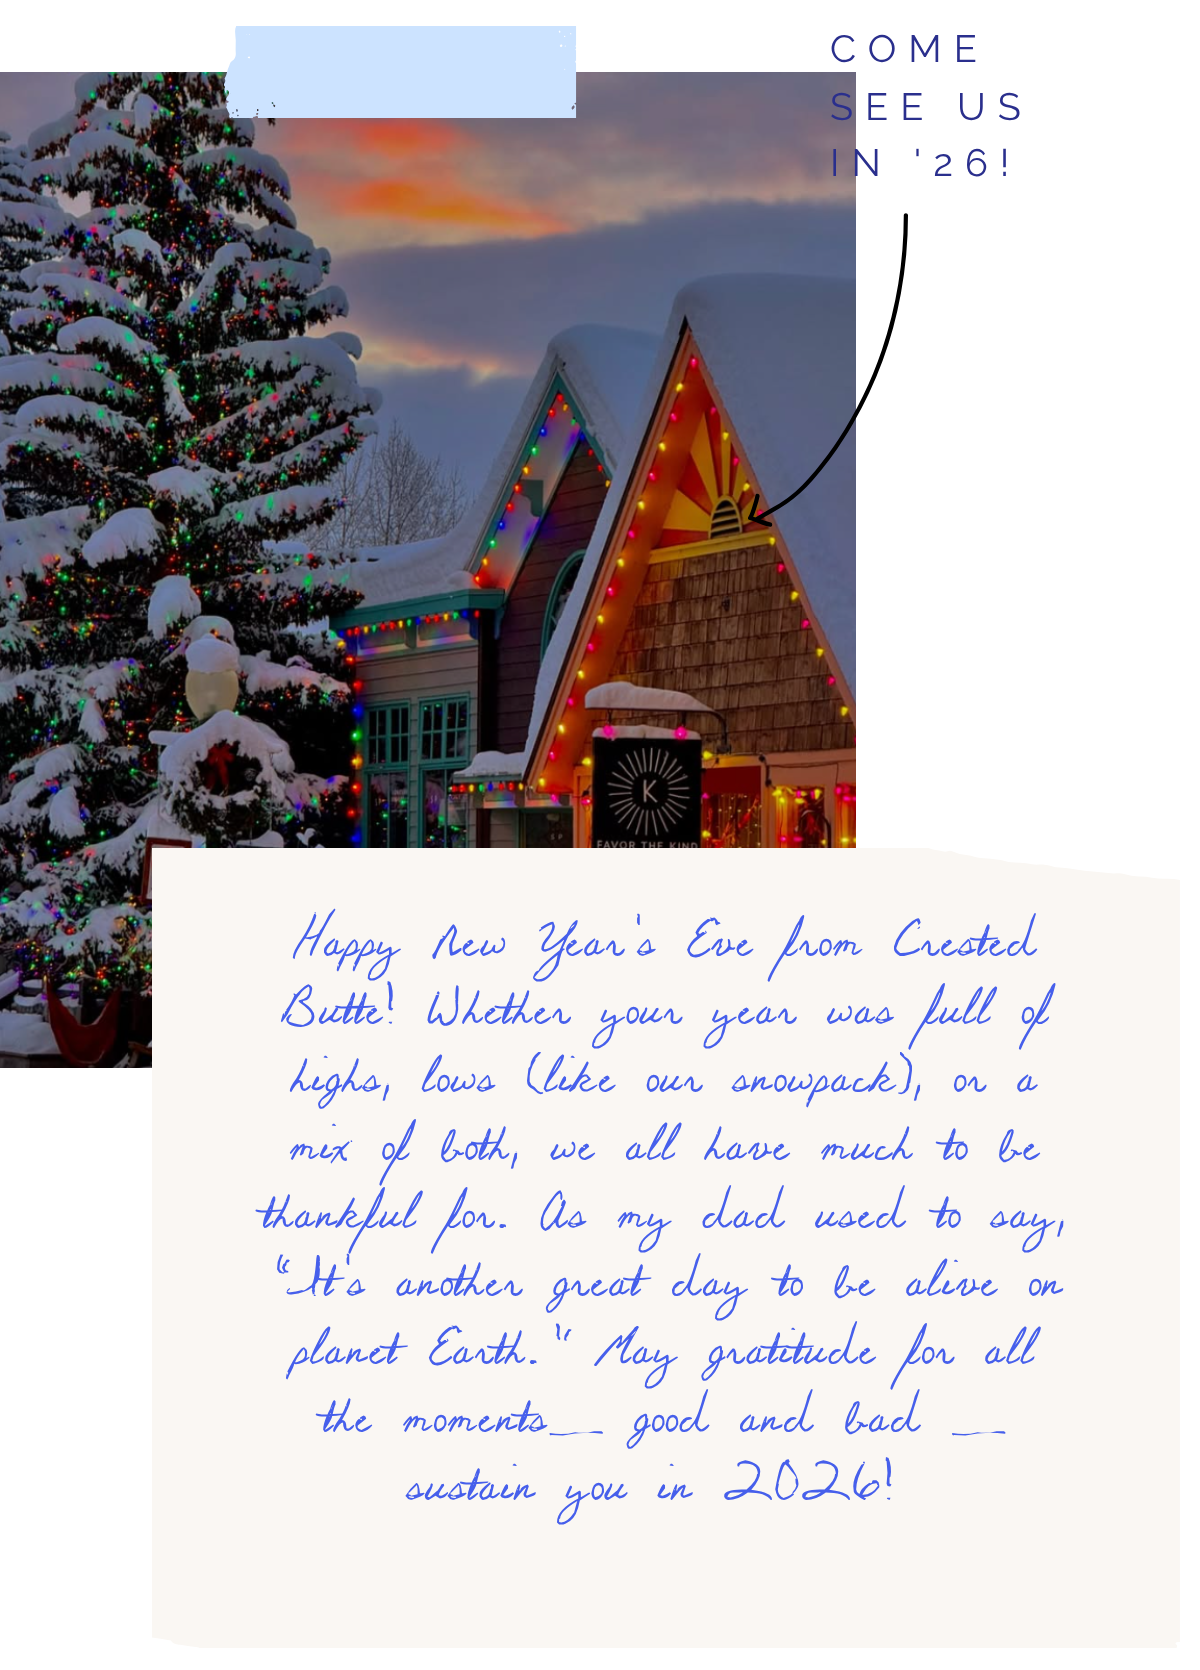 COME
SEE US
IN '26!
K
FAVOR THE KIND
Happy New Year's Eve from Crested
Butte! Whether your year was full of
highs, lows (like our snowpack), or a
mix of both, we all have much to be
thankful for. As my dad used to say,
"It's another great day to be alive on
planet Earth." May gratitude for all
the moments__ good and bad __
sustain you in 2026!